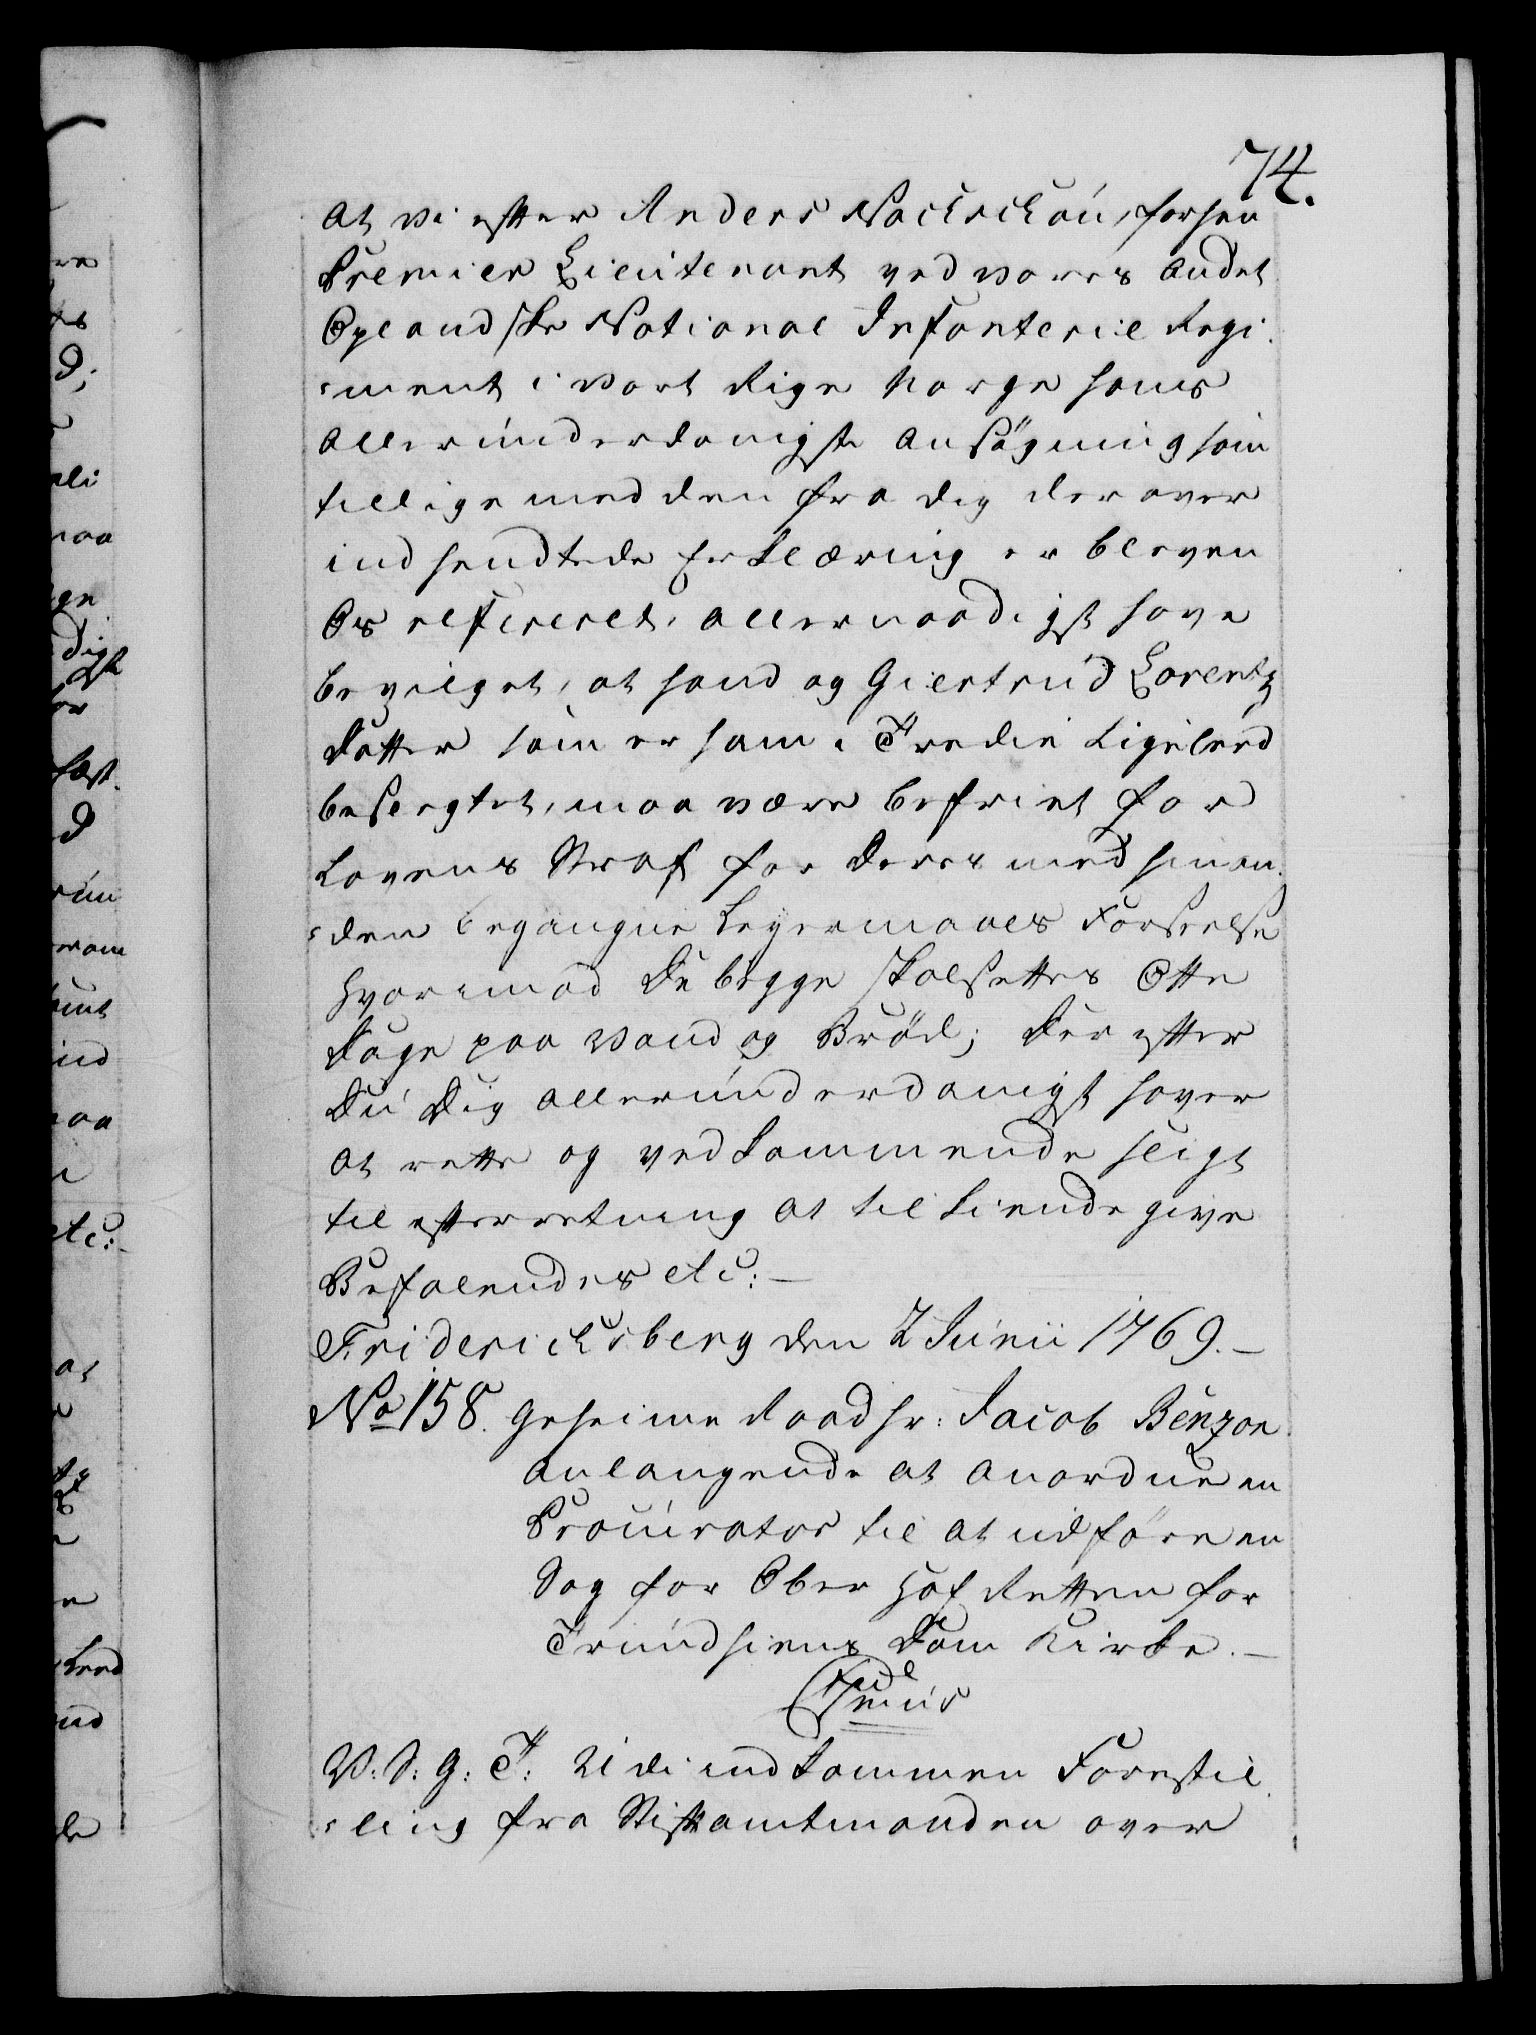 74.
at vi efter Anders Nachschou, forhen
Premier Lieutenant ved vores andet
Oplandske National Infanterie Regi-
-ment i vort Rige Norge hans
allerunderdanigste ansögning som
tillige med den fra dig derover
indsendtede Erklæring er bleven
Os refereret, allernaadigst have
bevilget, at hand og Giertrud Lorentz
datter som er ham i Tredie Ligeleed
besvogret, maa være befriet for
Lovens Straf for deres med hinan-
-den begangne Leyermaals Forseelse
hvorimod de begge skal settes Otte
Dage paa Vand og Bröd; Der efter
du dig allerunderdanigst haver
at rette og vedkommende sligt
til efterretning at tilkiende give
Befalendes etc:—
Friderichsberg den 2 Junii 1769.—
No 158. Geheime Raad Hr: Jacob Benzon
anlangende at anordne en
Procurator til at udföre en
Sag for Ober Hof Retten for
Trundhiems Dom Kirke.—
V: S: G: T: Udi indkommen Forestil-
-ling fra Stiftamtmanden over